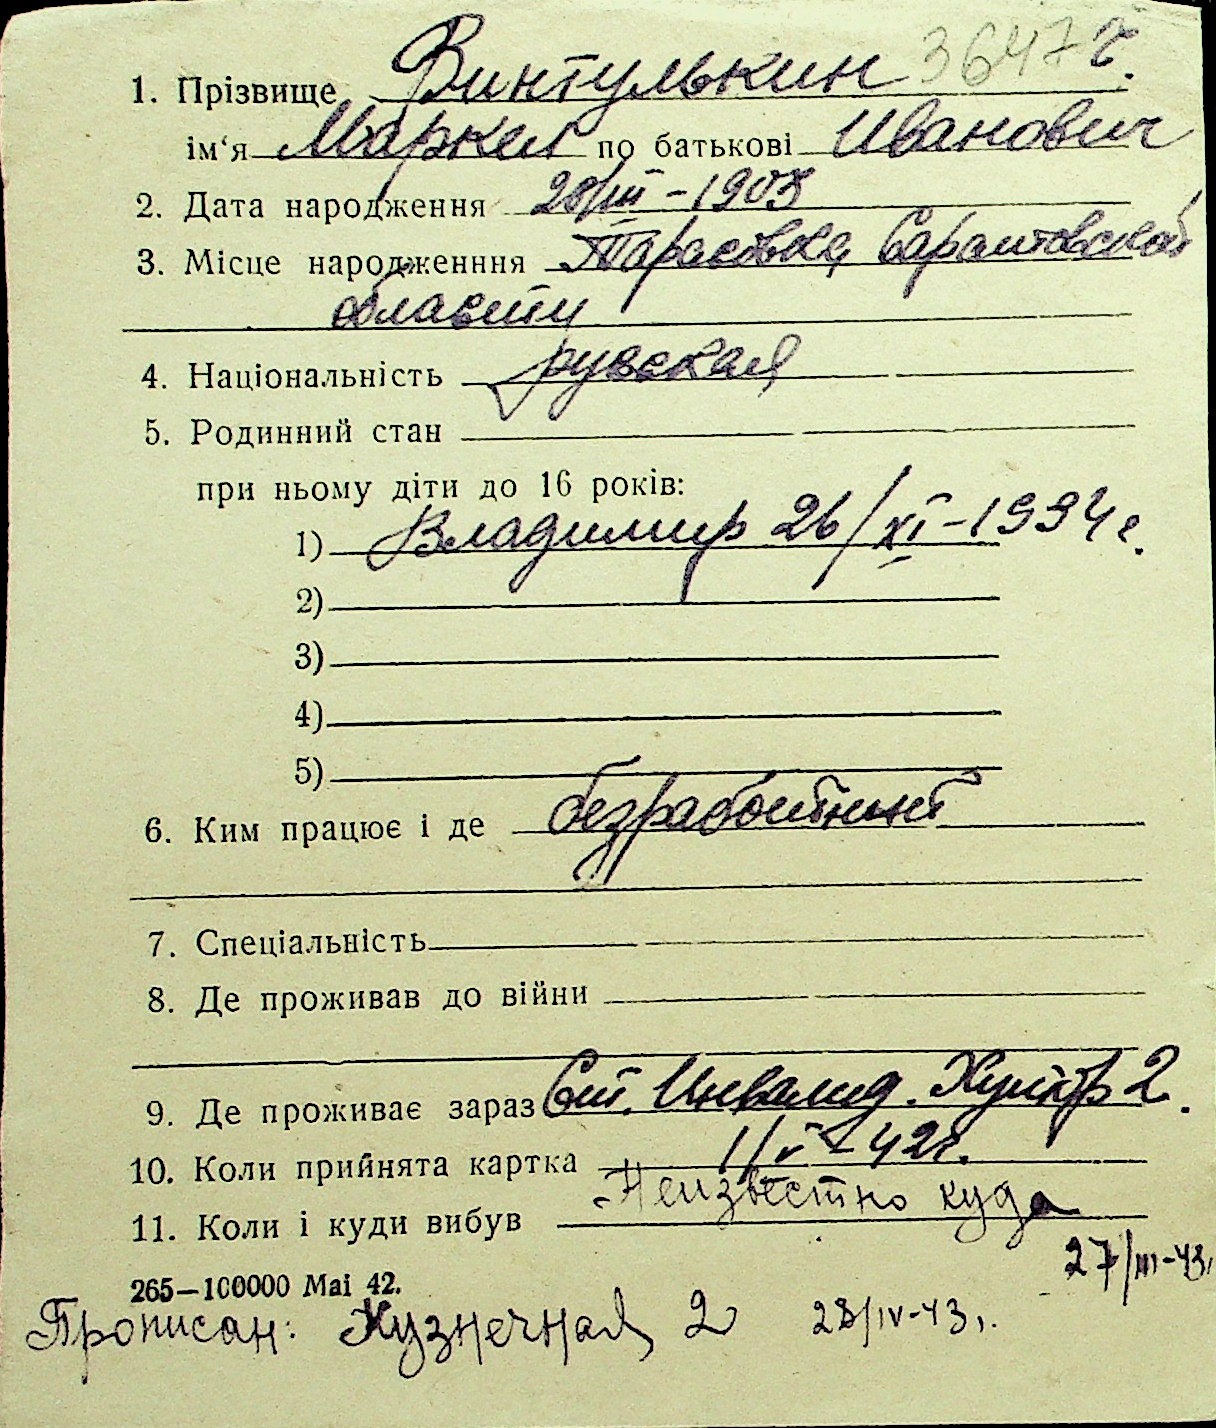 1. Прізвище Винтулькин 3647 г.
ім'я Маркел по батькові Иванович
2. Дата народження 28/III - 1903
3. Місце народженння Тарасовка, Саратовской
области
4. Національність русская
5. Родинний стан
при ньому діти до 16 років:
1) Владимир 26/XI - 1934 г.
2)
3)
4)
5)
6. Ким працює і де безработный
7. Спеціальність
8. Де проживав до війни
9. Де проживає зараз Ст. Инвалид. Хутор 2.
10. Коли прийнята картка 1/V - 42г.
11. Коли і куди вибув Неизвестно куда
27/III-43.
265—100000 Mai 42.
Прописан: Кузнечная 2 28/IV-43г.